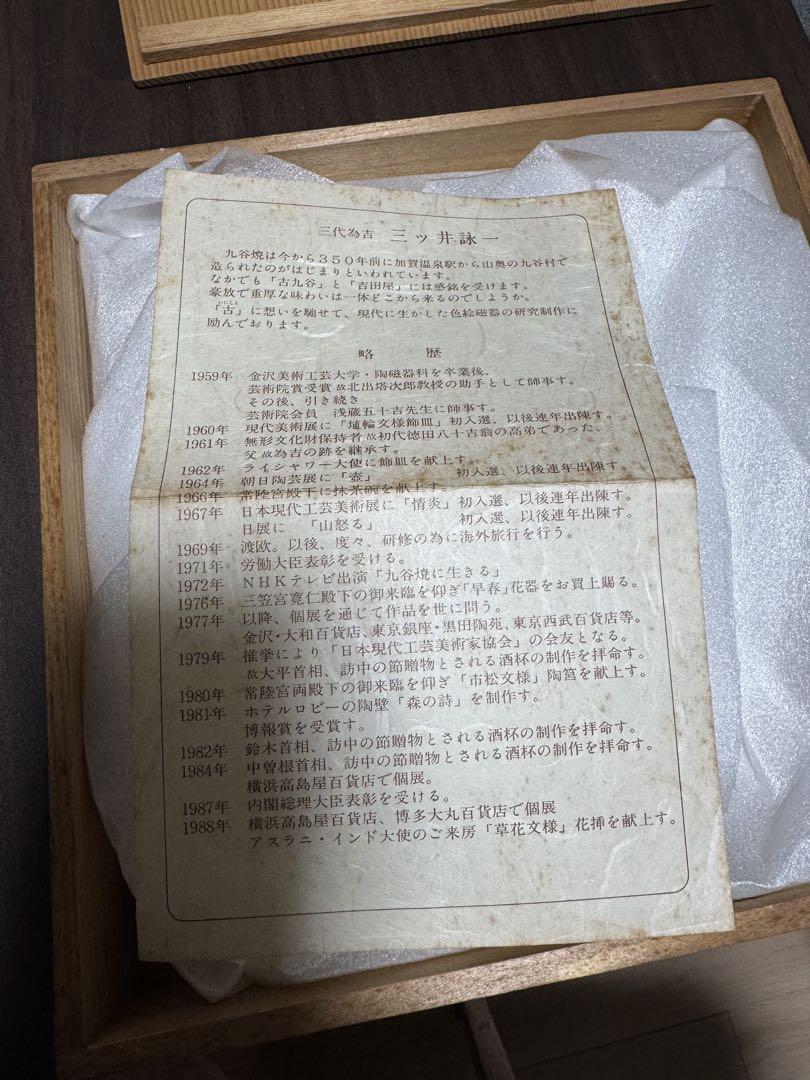 三代為吉　三ッ井詠一
九谷焼は今から350年前に加賀温泉駅から山奥の九谷村で
造られたのがはじまりといわれています。
なかでも「古九谷」と「吉田屋」には感銘を受けます。
豪放で重厚な味わいは一体どこから来るのでしょうか。
いにしえ
「古」に想いを馳せて、現代に生かした色絵磁器の研究制作に
励んでおります。
略　歴
1959年　金沢美術工芸大学・陶磁器科を卒業後、
芸術院賞受賞故北出塔次郎教授の助手として師事す。
その後、引き続き
芸術院会員　浅蔵五十吉先生に師事す。
1960年　現代美術展に「埴輪文様飾皿」初入選、以後連年出陳す。
1961年　無形文化財保持者故初代徳田八十吉翁の高弟であった、
父故為吉の跡を継承す。
1962年　ライシャワー大使に飾皿を献上す。
1964年　朝日陶芸展に「壺」　初入選、以後連年出陳す。
1966年　常陸宮殿下に抹茶碗を献上す。
1967年　日本現代工芸美術展に「情炎」初入選、以後連年出陳す。
日展に　「山怒る」　初入選、以後連年出陳す。
1969年　渡欧。以後、度々、研修の為に海外旅行を行う。
1971年　労働大臣表彰を受ける。
1972年　NHKテレビ出演「九谷焼に生きる」
1976年　三笠宮寛仁殿下の御来臨を仰ぎ「早春」花器をお買上賜る。
1977年　以降、個展を通じて作品を世に問う。
金沢・大和百貨店、東京銀座・黒田陶苑、東京西武百貨店等。
1979年　惟挙により「日本現代工芸美術家協会」の会友となる。
故大平首相、訪中の節贈物とされる酒杯の制作を拝命す。
1980年　常陸宮両殿下の御来臨を仰ぎ「市松文様」陶筥を献上す。
1981年　ホテルロビーの陶壁「森の詩」を制作す。
博報賞を受賞す。
1982年　鈴木首相、訪中の節贈物とされる酒杯の制作を拝命す。
1984年　中曽根首相、訪中の節贈物とされる酒杯の制作を拝命す。
横浜高島屋百貨店で個展。
1987年　内閣総理大臣表彰を受ける。
1988年　横浜高島屋百貨店、博多大丸百貨店で個展
アスラニ・インド大使のご来房「草花文様」花挿を献上す。